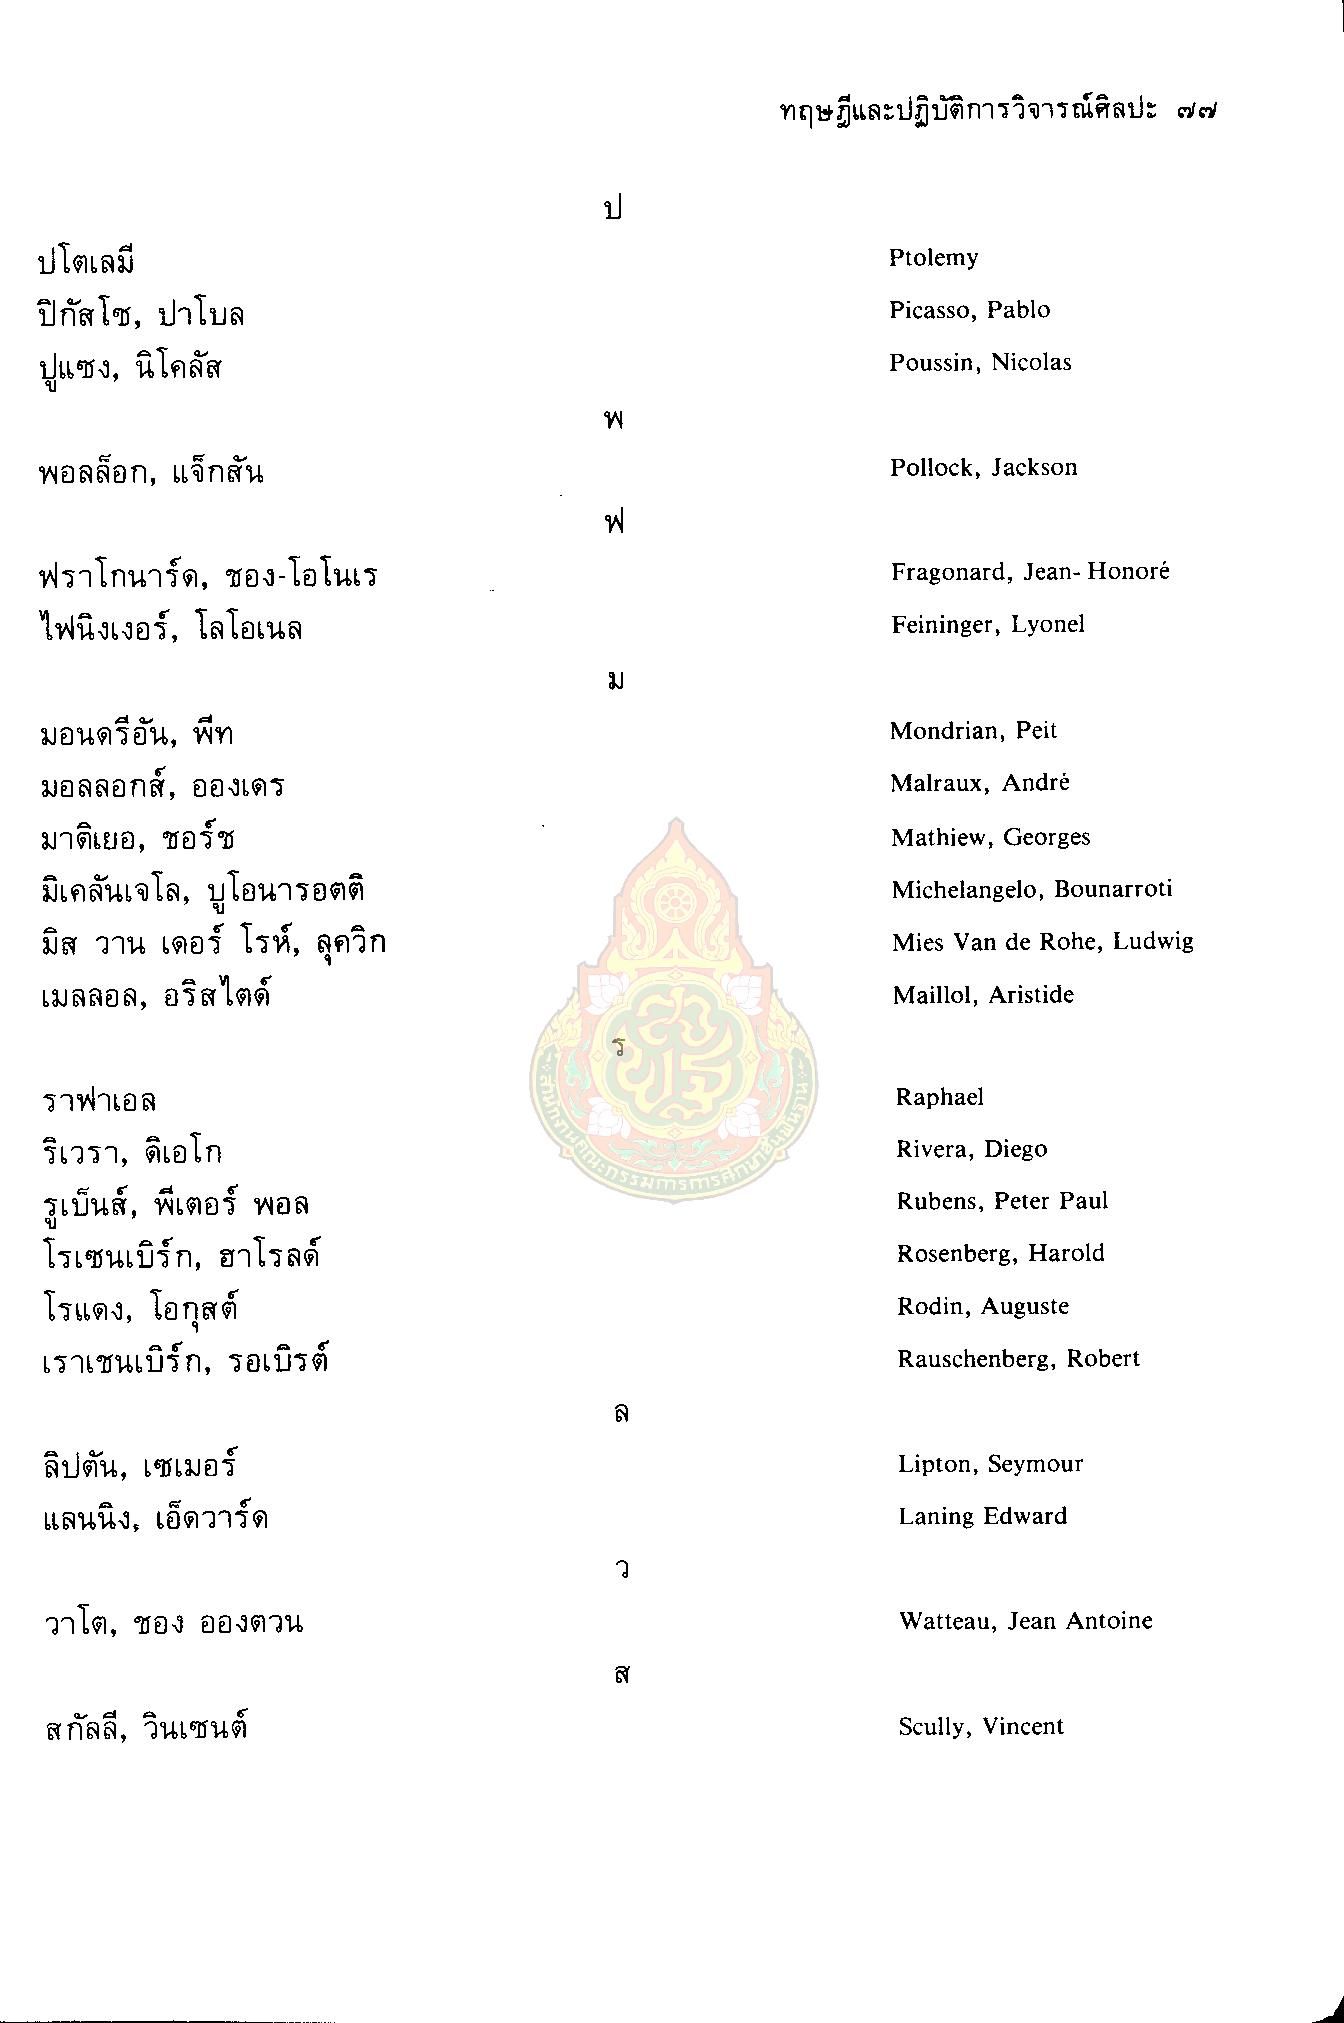 ทฤษฎีและปฏิบัติการวิจารณ์ศิลปะ ๗๗
ป
ปโตเลมี Ptolemy
ปิกัสโซ, ปาโบล Picasso, Pablo
ปูแซง, นิโคลัส Poussin, Nicolas
พ
พอลล็อก, แจ็กสัน Pollock, Jackson
ฟ
ฟราโกนาร์ด, ชอง-โอโนเร Fragonard, Jean-Honoré
ไฟนิงเงอร์, โลโอเนล Feininger, Lyonel
ม
มอนดรีอัน, พีท Mondrian, Peit
มอลลอกส์, อองเดร Malraux, André
มาติเยอ, ชอร์ช Mathiew, Georges
มิเคลันเจโล, บูโอนารอตติ Michelangelo, Bounarroti
มิส วาน เดอร์ โรห์, ลุควิก Mies Van de Rohe, Ludwig
เมลลอล, อริสไตด์ Maillol, Aristide
ร
ราฟาเอล Raphael
ริเวรา, ดิเอโก Rivera, Diego
รูเบ็นส์, พีเตอร์ พอล Rubens, Peter Paul
โรเซนเบิร์ก, ฮาโรลด์ Rosenberg, Harold
โรแดง, โอกุสต์ Rodin, Auguste
เราเชนเบิร์ก, รอเบิรต์ Rauschenberg, Robert
ล
ลิปตัน, เซเมอร์ Lipton, Seymour
แลนนิง, เอ็ดวาร์ด Laning Edward
ว
วาโต, ชอง อองตวน Watteau, Jean Antoine
ส
สกัลลี, วินเซนต์ Scully, Vincent
สำนักงานคณะกรรมการการศึกษาขั้นพื้นฐาน